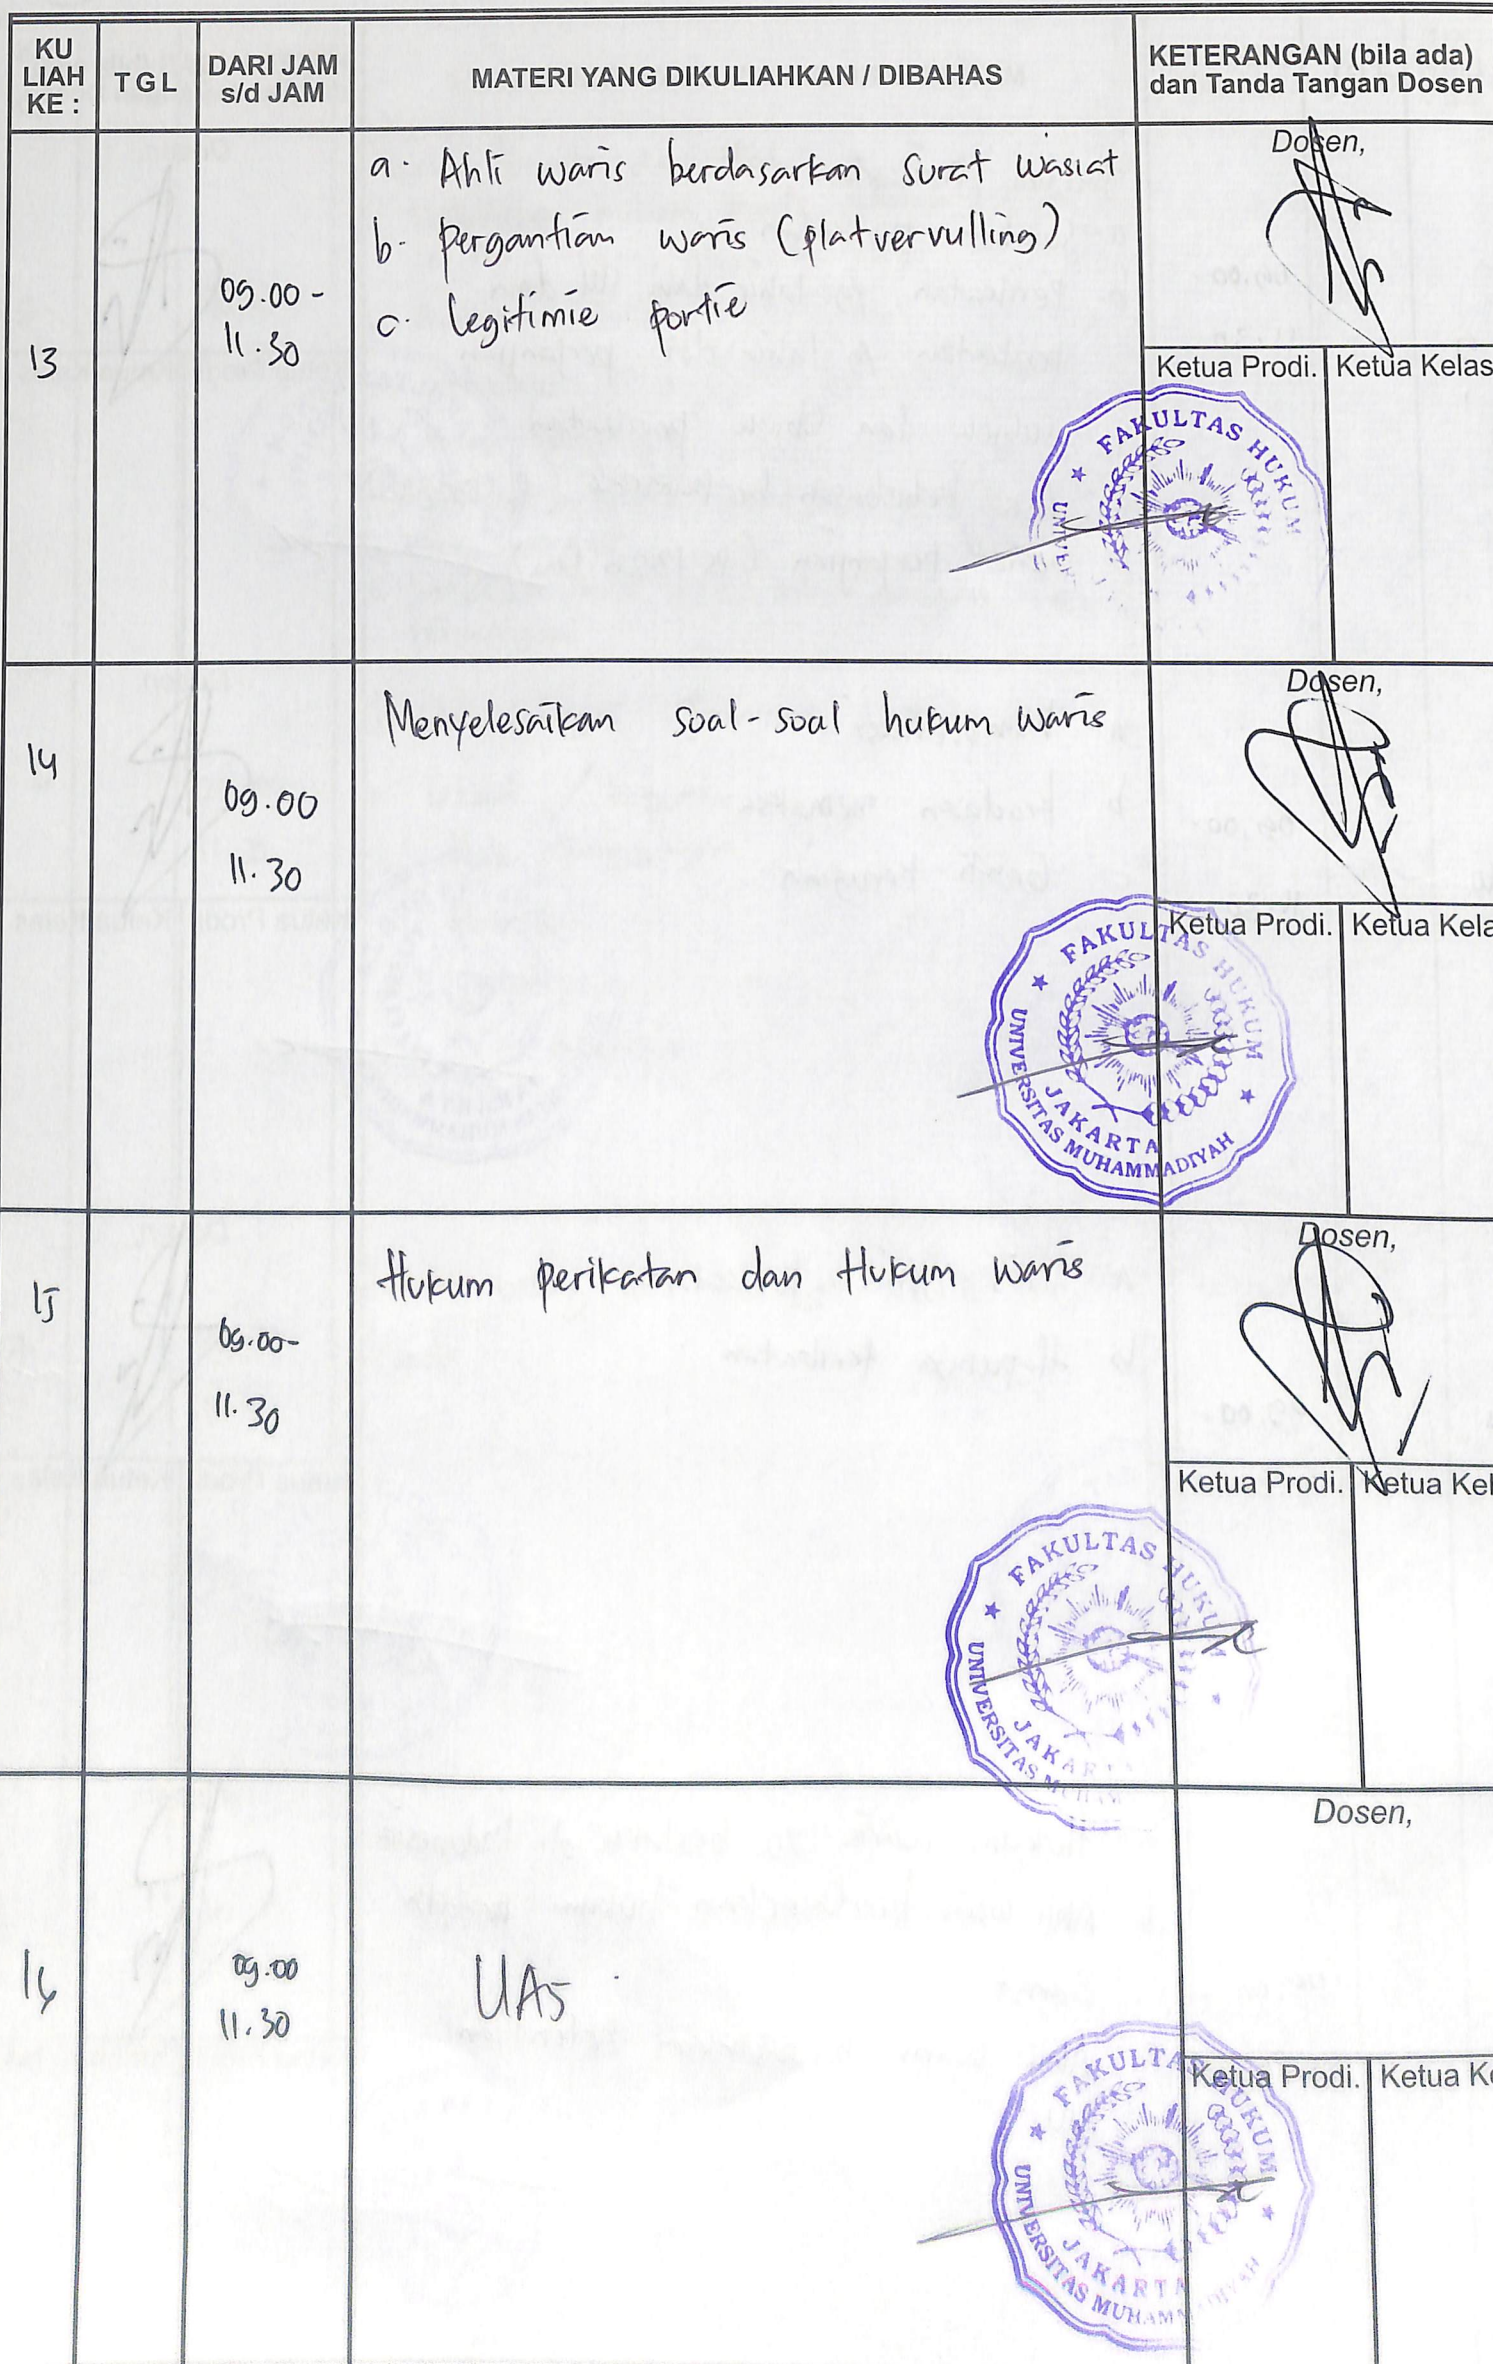 KU
LIAH
KE :
TGL
DARI JAM
s/d JAM
MATERI YANG DIKULIAHKAN / DIBAHAS
KETERANGAN (bila ada)
dan Tanda Tangan Dosen
13
09.00 -
11.30
a. Ahli waris berdasarkan surat wasiat
b. pergantian waris (platvervulling)
c. legitimie portie
Dosen,
Ketua Prodi.
Ketua Kelas
FAKULTAS HUKUM
14
09.00
11.30
Menyelesaikan soal-soal hukum waris
Dosen,
Ketua Prodi.
Ketua Kela
FAKULTAS HUKUM
UNIVERSITAS MUHAMMADIYAH
JAKARTA
15
09.00-
11.30
Hukum perikatan dan Hukum waris
Dosen,
Ketua Prodi.
Ketua Kel
FAKULTAS HUKUM
UNIVERSITAS
16
09.00
11.30
UAS
Dosen,
Ketua Prodi.
Ketua Ke
FAKULTAS HUKUM
UNIVERSITAS MUHAMMADIYAH
JAKARTA